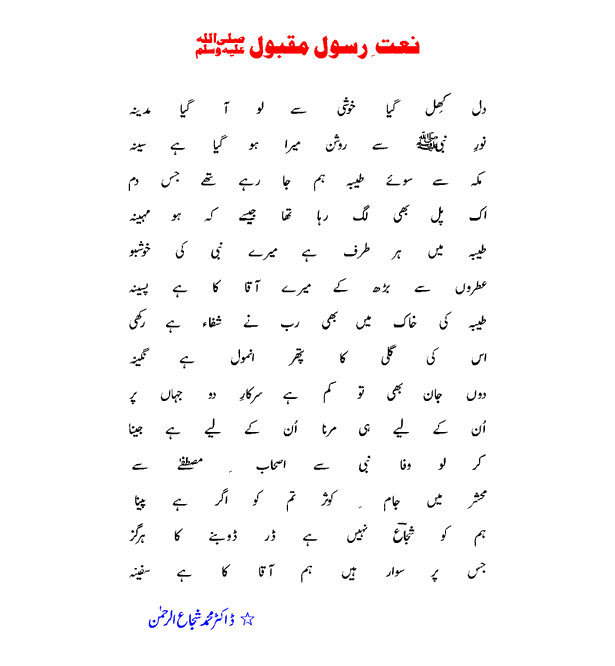 نعت ِ رسول مقبول ﷺ
دل کِھل گیا خوشی سے لو آ گیا مدینہ
نورِ نبیﷺ سے روشن میرا ہو گیا ہے سینہ
مکہ سے سوئے طیبہ ہم جا رہے تھے جس دم
اک پل بھی لگ رہا تھا جیسے کہ ہو مہینہ
طیبہ میں ہر طرف ہے میرے نبی کی خوشبو
عطروں سے بڑھ کے میرے آقا کا ہے پسینہ
طیبہ کی خاک میں بھی رب نے شفاء ہے رکھی
اس کی گلی کا پتھر انمول ہے نگینہ
دوں جان بھی تو کم ہے سرکارِ دو جہاں پر
اُن کے لیے ہی مرنا اُن کے لیے ہے جینا
کر لو وفا نبی سے اصحاب ِ مصطفےٰ سے
محشر میں جام ِ کوثر تم کو اگر ہے پینا
ہم کو شجاعؔ نہیں ہے ڈر ڈوبنے کا ہرگز
جس پر سوار ہیں ہم آقا کا ہے سفینہ
☆ ڈاکٹر محمد شجاع الرحمٰن